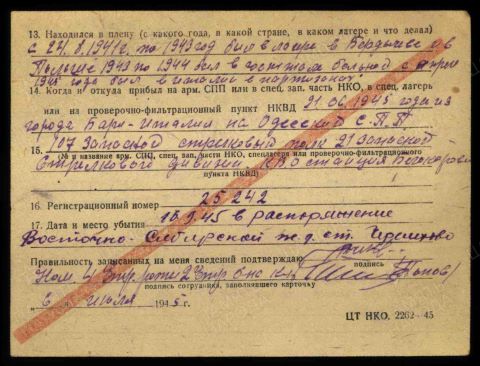 13. Находился в плену (с какого года, в какой стране, в каком лагере и что делал)
с 24.8.1941г. по 1943 год был в лагере в Бердичеве а в
Польше 1943 по 1944 был в больной с
1945 года был в италии с партизанах
14. Когда и откуда прибыл на арм. СПП или в спец. зап. часть НКО, в спец. лагерь
или на проверочно-фильтрационный пункт НКВД 21.06.1945 года из
города Бари-Италии на Одесский С.П.П.
15. 107 Запасной стрелковый полк 21 Запасной
(№ и название арм. СПП, спец. зап. части НКО, спецлагеря или проверочно-фильтрационного
Стрелковой дивизии станция
пункта НКВД)
16. Регистрационный номер 25242
17. Дата и место убытия 10.9.45 в распоряжение
Восточно-Сибирской ж.д. ст.
Правильность записанных на меня сведений подтверждаю
подпись
Попов
подпись сотрудника, заполнявшего карточку
6 июля 1945 г.
ЦТ НКО. 2262-45